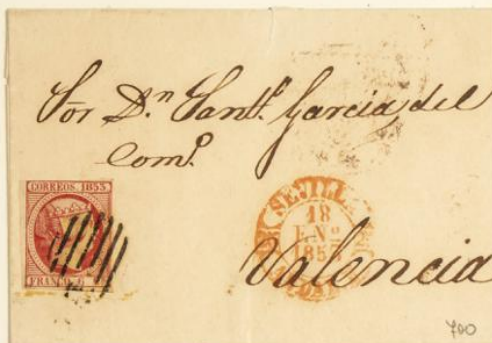 Sor D.n Sant.º Garcia del
Com.º
CORREOS. 1853
FRANCO. 6
SEVILLA
18
EN.º
185
Valencia
700